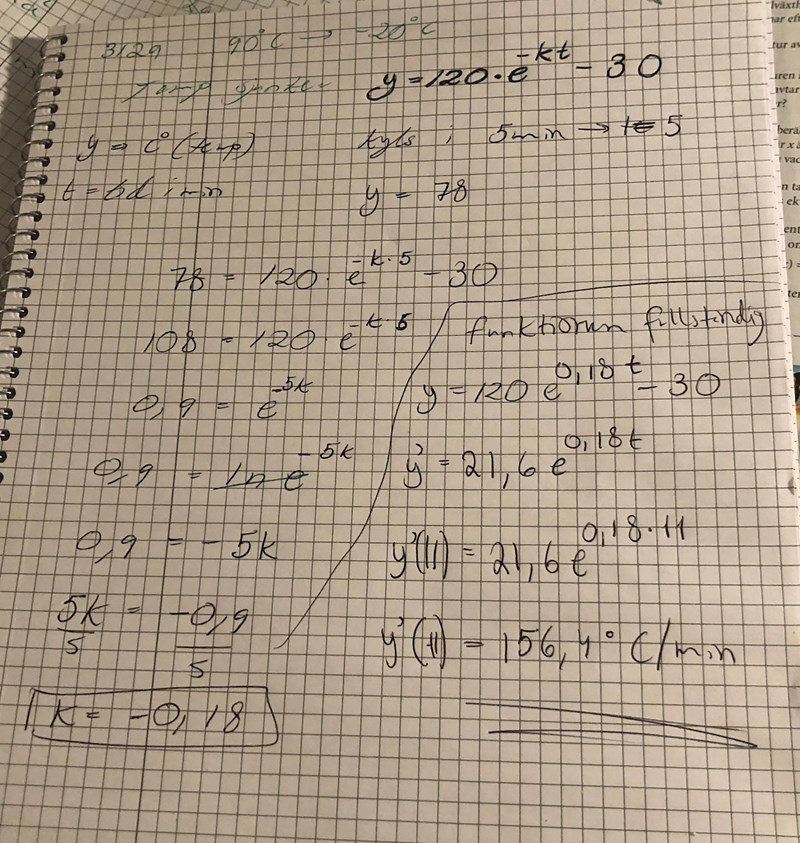 3129 90°C → -20°C
Temp y = 120 · e^-kt - 30
y = C° (temp) kyls i 5min → t = 5
t = tid i min y = 78
78 = 120 · e^-k·5 - 30
108 = 120 · e^-k·5
0,9 = e^-5k
0,9 = ln e^-5k
0,9 = -5k
5k/5 = -0,9/5
k = -0,18
funktionen fullständig
y = 120 e^0,18t - 30
y' = 21,6 e^0,18t
y'(11) = 21,6 e^0,18·11
y'(11) = 156,4° C/min